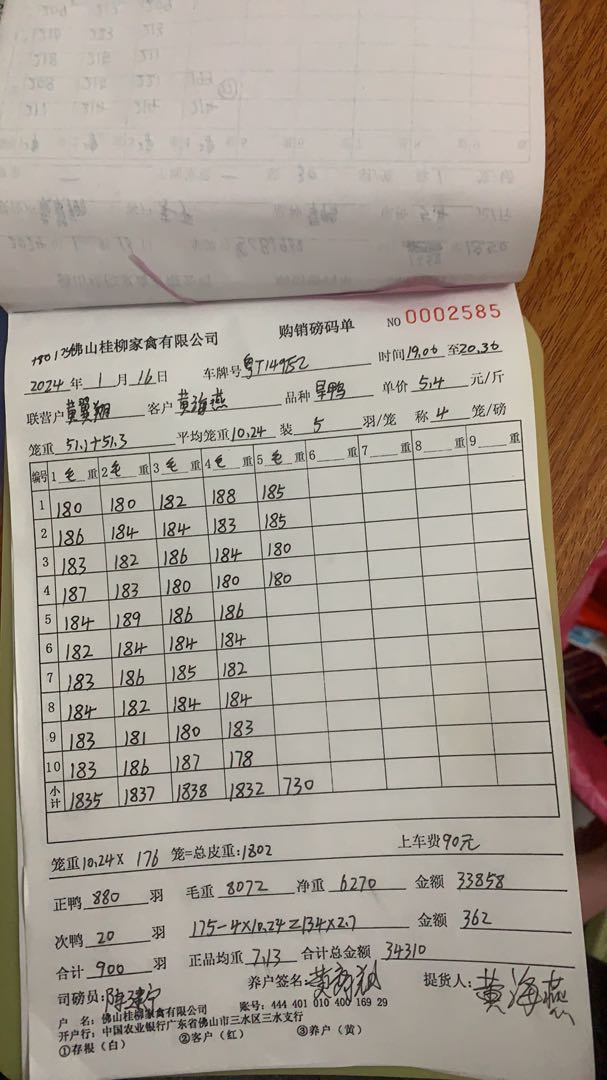 佛山桂柳家禽有限公司 购销磅码单 NO 0002585
2024年1月16日 车牌号粤T14952 时间19.06至20.36
联营户 客户黄海燕 品种旱鸭 单价5.4元/斤
笼重51.1+51.3 平均笼重10.24装5羽/笼 称4笼/磅
编号 1毛重 2毛重 3毛重 4毛重 5毛重 6重 7重 8重 9重
1 180 180 182 188 185
2 186 184 184 183 185
3 183 182 186 184 180
4 187 183 180 180 180
5 184 189 186 186
6 182 184 184 184
7 183 186 185 182
8 184 182 184 184
9 183 181 180 183
10 183 186 187 178
小计 1835 1837 1838 1832 730
笼重10.24×176笼=总皮重:1802 上车费90元
正鸭880羽 毛重8072 净重6270 金额33858
次鸭20羽 175-4×10.24=134×2.7 金额362
合计900羽 正品均重7.13 合计总金额34310
司磅员: 养户签名: 提货人:黄海燕
户 名:佛山桂柳家禽有限公司 账号:444 401 010 400 169 29
开户行:中国农业银行广东省佛山市三水区三水支行
①存根(白) ②客户(红) ③养户(黄)